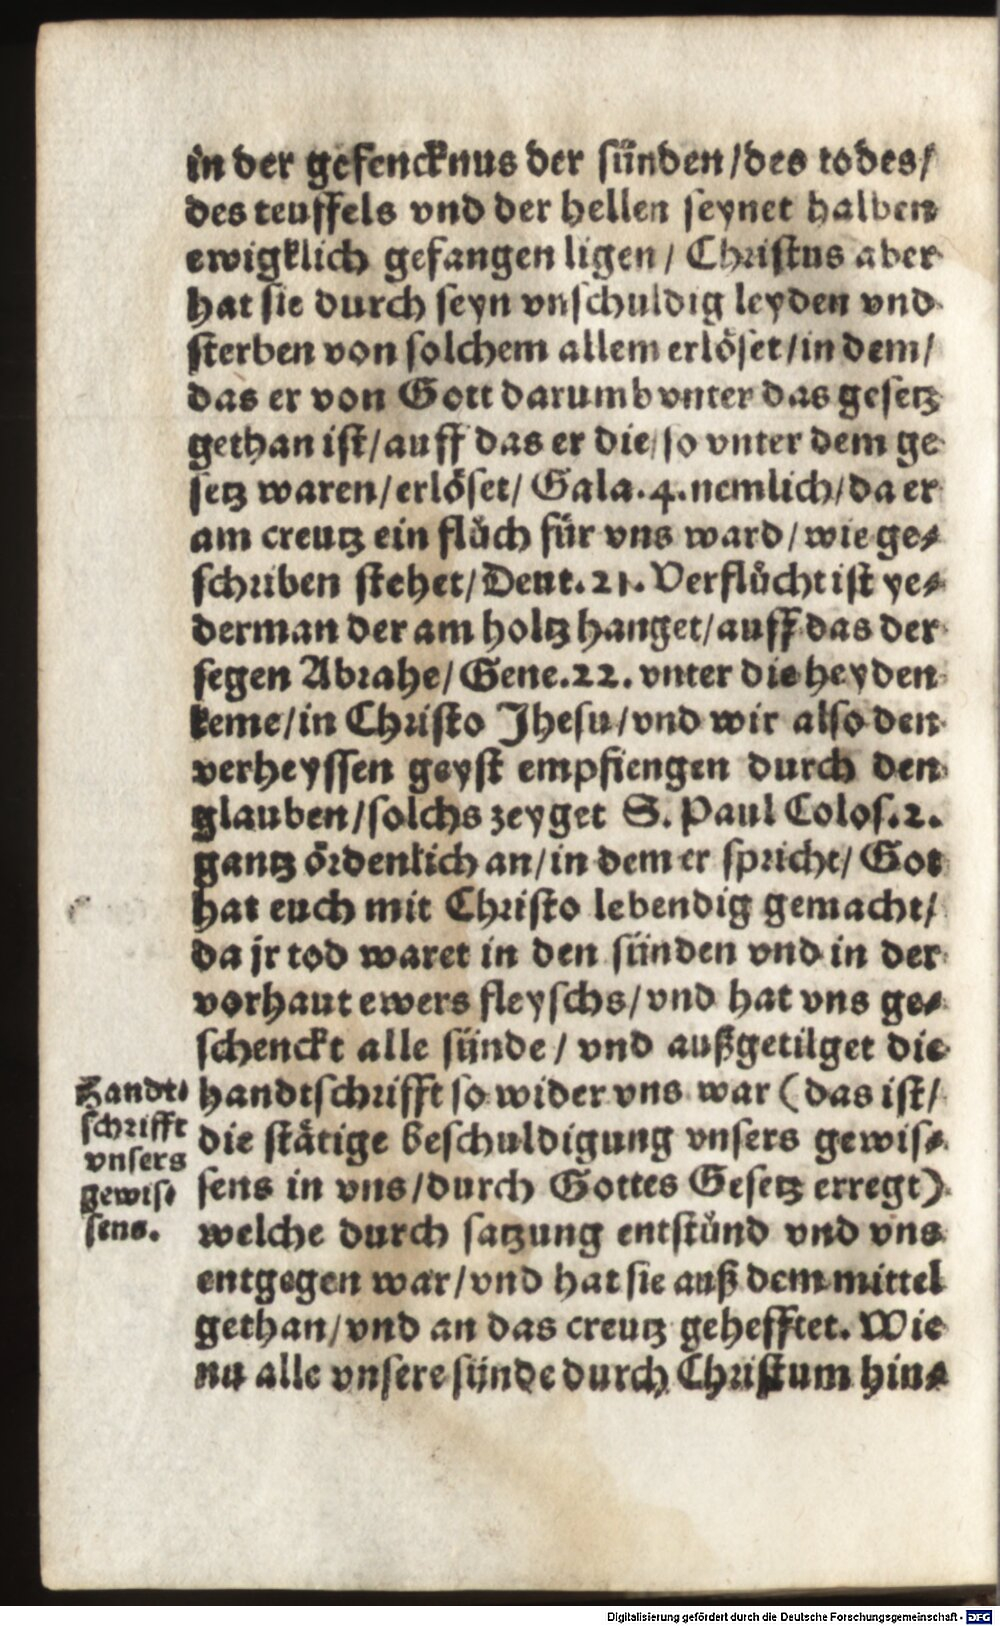 in der gefencknus der sünden/des todes/
des teuffels vnd der hellen seynet halben
ewigklich gefangen ligen/ Christus aber
hat sie durch seyn vnschuldig leyden vnd
sterben von solchem allem erlöset/in dem/
das er von Gott darumb vnter das gesetz
gethan ist/auff das er die/so vnter dem ge
setz waren/erlöset/ Gala.4.nemlich/da er
am creutz ein flůch für vns ward/wie ge⸗
schriben stehet/Deut.21.Verflůcht ist ye⸗
derman der am holtz hanget/auff das der
segen Abrahe/Gene.22.vnter die heyden
keme/in Christo Jhesu/vnd wir also den
verheyssen geyst empfiengen durch den
glauben/solchs zeyget S.Paul Colos.2.
gantz ördenlich an/in dem er spricht/ Got
hat euch mit Christo lebendig gemacht/
da jr tod waret in den sünden vnd in der
vorhaut ewers fleyschs/vnd hat vns ge⸗
schenckt alle sünde/ vnd außgetilget die
handtschrifft so wider vns war (das ist/
die stätige beschuldigung vnsers gewis⸗
sens in vns/durch Gottes Gesetz erregt)
welche durch satzung entstůnd vnd vns
entgegen war/vnd hat sie auß dem mittel
gethan/vnd an das creutz gehefftet. Wie
nu alle vnsere sünde durch Christum hin⸗
Handt⸗
schrifft
vnsers
gewis⸗
sens.
Digitalisierung gefördert durch die Deutsche Forschungsgemeinschaft - DFG